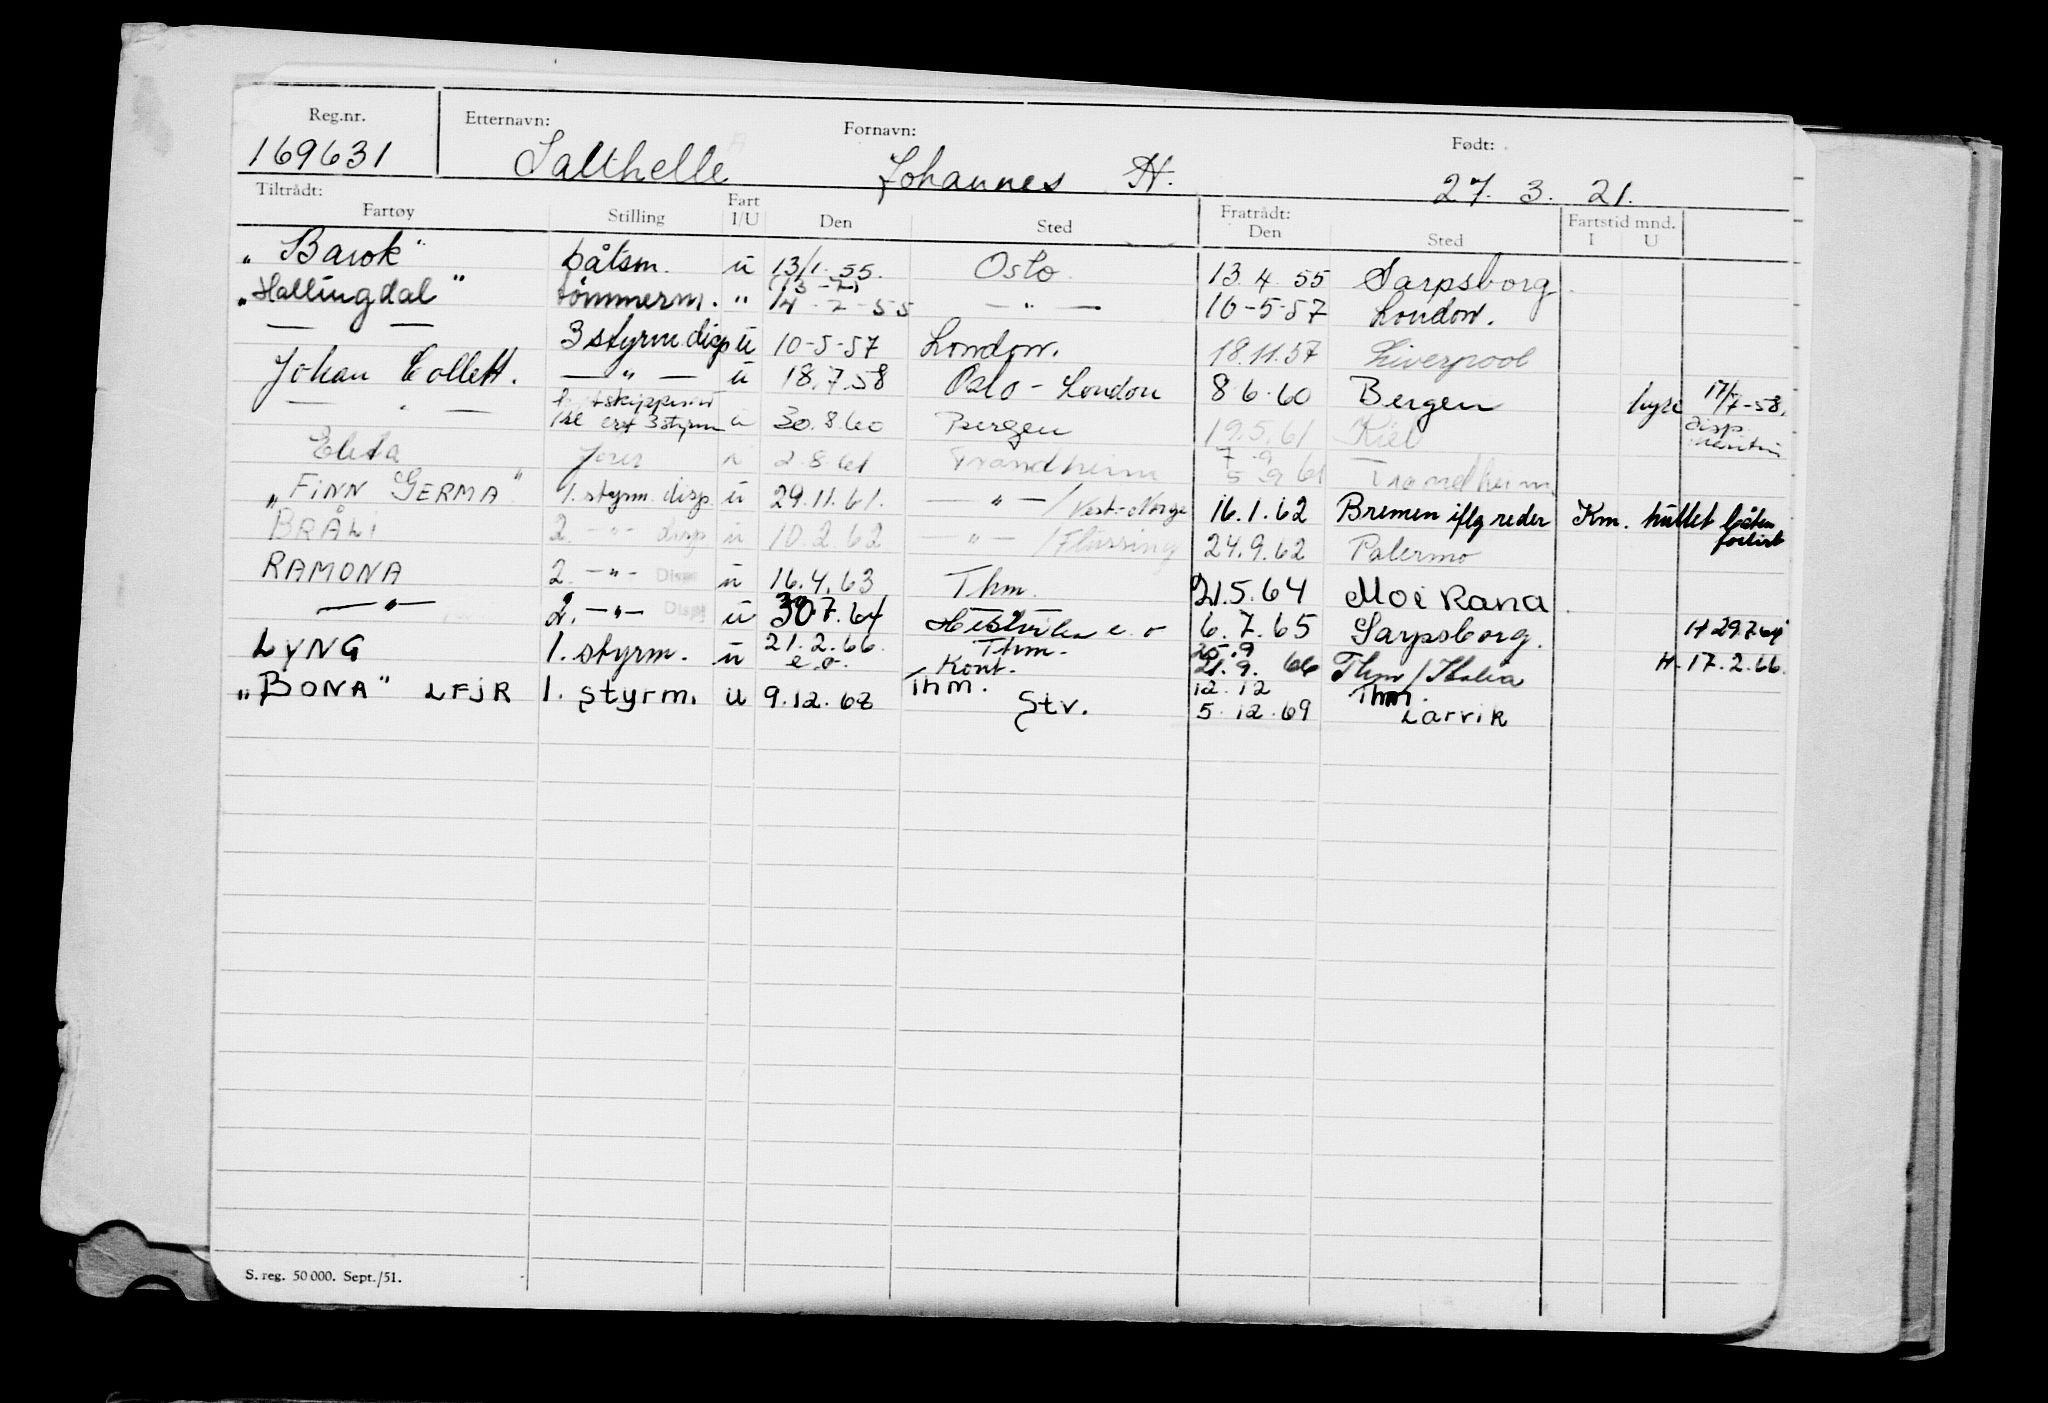 Reg.nr. Etternavn: Fornavn: Født:
169631 Salthelle Johannes H. 27. 3. 21.
Tiltrådt: Fratrådt:
Fartøy Stilling Fart I/U Den Sted Den Sted Fartstid mnd. I U
"Barok" båtsm. u 13/1. 55. Oslo 13.4.55 Sarpsborg
"Hallingdal" tømmerm. " 14-2-55 — " — 10-5-57 London.
— — 3 styrm disp u 10-5-57 London. 18.11.57 Liverpool
Johan Collett. — " — u 18.7.58 Oslo - London 8.6.60 Bergen hyre 17/7-58.
— " — 3 styrm u 30.8.60 Bergen 19.5.61 Kiel disp.
Elida u 2.8.61 Trondheim 5.9.61 Trondheim
"FINN GERMA" 1. styrm. disp. u 29.11.61. — " — / Vest-Norge 16.1.62 Bremen iflg reder Km. båten forlist
BRÅLI 2. — " — disp u 10.2.62 — " — / Flissing 24.9.62 Palermo
RAMONA 2. — " — Disp u 16.4.63 Thm. 21.5.64 Mo i Rana
— " — 2. — " — Disp u 30.7.64 e.o 6.7.65 Sarpsborg. H 29.7.64
LYNG 1. styrm. u 21.2.66. e.o. Thm. Kont. 25.9 21.9. 66 Thm / Italia H. 17.2.66.
"BONA" LFJR 1. styrm. u 9.12.68 Thm. Stv. 12.12 5.12.69 Thm. Larvik
S. reg. 50 000. Sept./51.